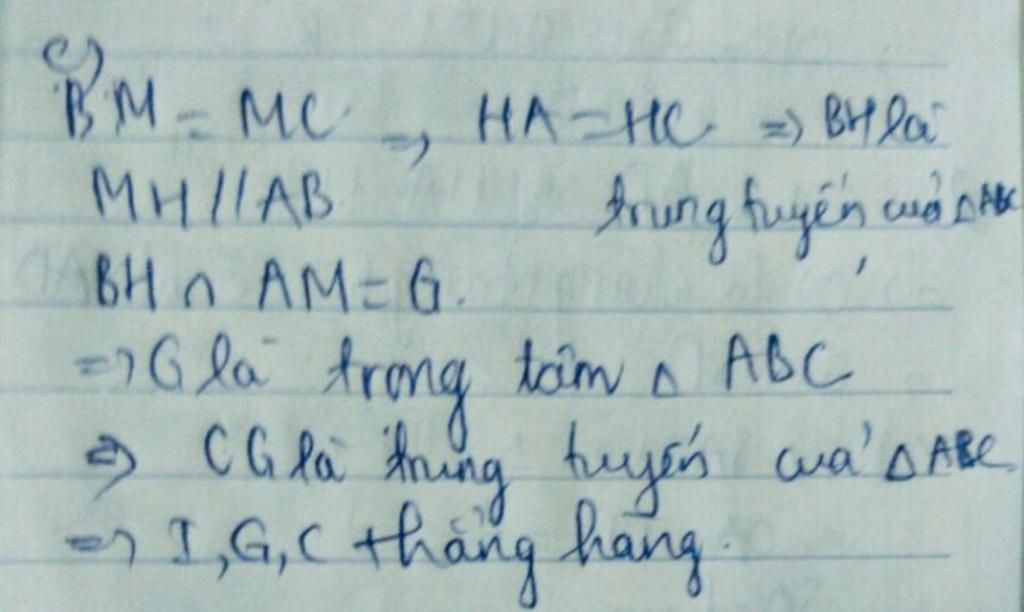 c)
BM = MC => HA = HC => BH là
MH // AB trung tuyến của △ABC
BH ∩ AM = G.
=> G là trọng tâm △ ABC
=> CG là trung tuyến của △ABC
=> I, G, C thẳng hàng.